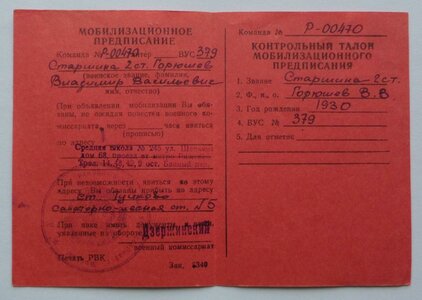 МОБИЛИЗАЦИОННОЕ
ПРЕДПИСАНИЕ
Команда № Р-00470 Литер ВУС 379
Старшина 2 ст. Горюшев
(воинское звание, фамилия,
Владимир Васильевич
имя, отчество)
При объявлении мобилизации Вы обя-
заны, не ожидая повестки военного ко-
миссариата через часов явиться
(прописью)
по адресу
Средняя школа № 245 ул.
дом 68, проезд от метро
трол. 14, 13, 42, 9 ост. Банный пер.
При невозможности явиться по этому
адресу Вы обязаны прибыть по адресу
ст. Тучково
Санаторно-лесная ст. № 5
При явке иметь документы и вещи,
указанные на обороте.
Дзержинский
военный комиссариат
Печать РВК Зак. 2340
Команда № Р-00470
КОНТРОЛЬНЫЙ ТАЛОН
МОБИЛИЗАЦИОННОГО
ПРЕДПИСАНИЯ
1. Звание Старшина 2 ст.
2. Ф., и., о. Горюшев В.В.
3. Год рождения 1930
4. ВУС № 379
5. Для отметок